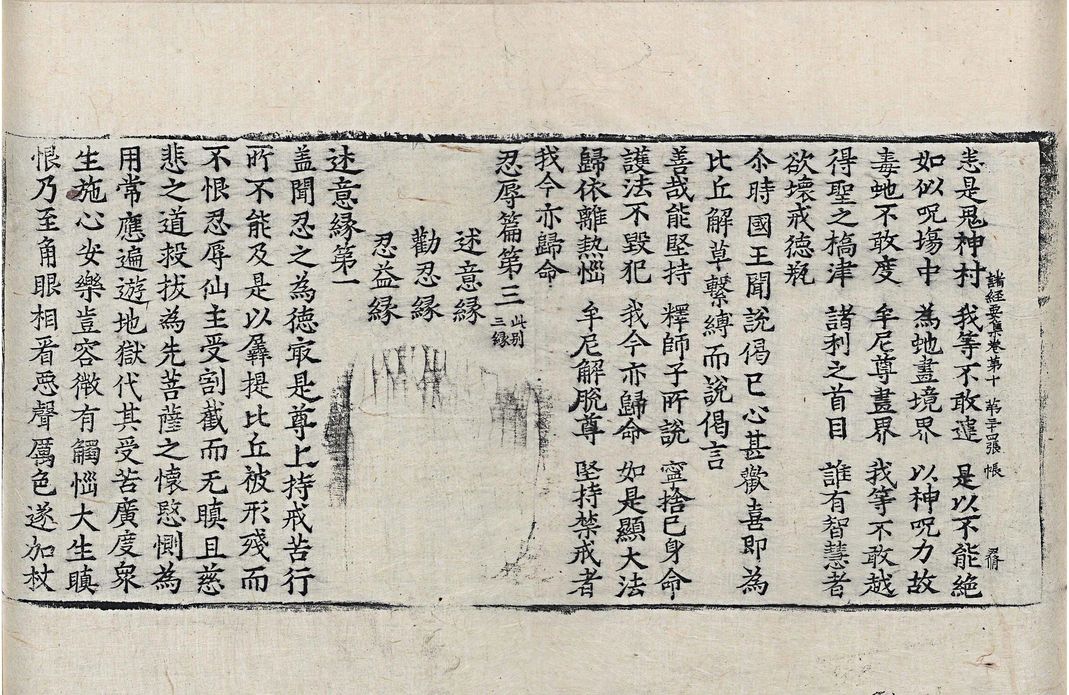 諸経要集巻第十 第二十四張 帳
悉是鬼神村 我等不敢違 是以不能絶
如似呪塲中 為虵畫境界 以神呪力故
毒虵不敢度 牟尼尊畫界 我等不敢越
得聖之橋津 諸利之首目 誰有智慧者
欲壞戒德瓶
尒時國王聞說偈已心甚歡喜即為
比丘解草繫縛而說偈言
善哉能堅持 釋師子所說 寧捨已身命
護法不毀犯 我今亦歸命 如是顯大法
歸依離熱惱 牟尼解脫尊 堅持禁戒者
我今亦歸命
忍辱篇第三 此别三縁
述意縁
勸忍縁
忍益縁
述意縁第一
盖聞忍之為德㝡是尊上持戒苦行
所不能及是以羼提比丘被形殘而
不恨忍辱仙主受割截而无瞋且慈
悲之道救拔為先菩薩之懷愍惻為
用常應遍遊地獄代其受苦廣度衆
生施心安樂豈容微有觸惱大生瞋
恨乃至角眼相看惡聲厲色遂加杖